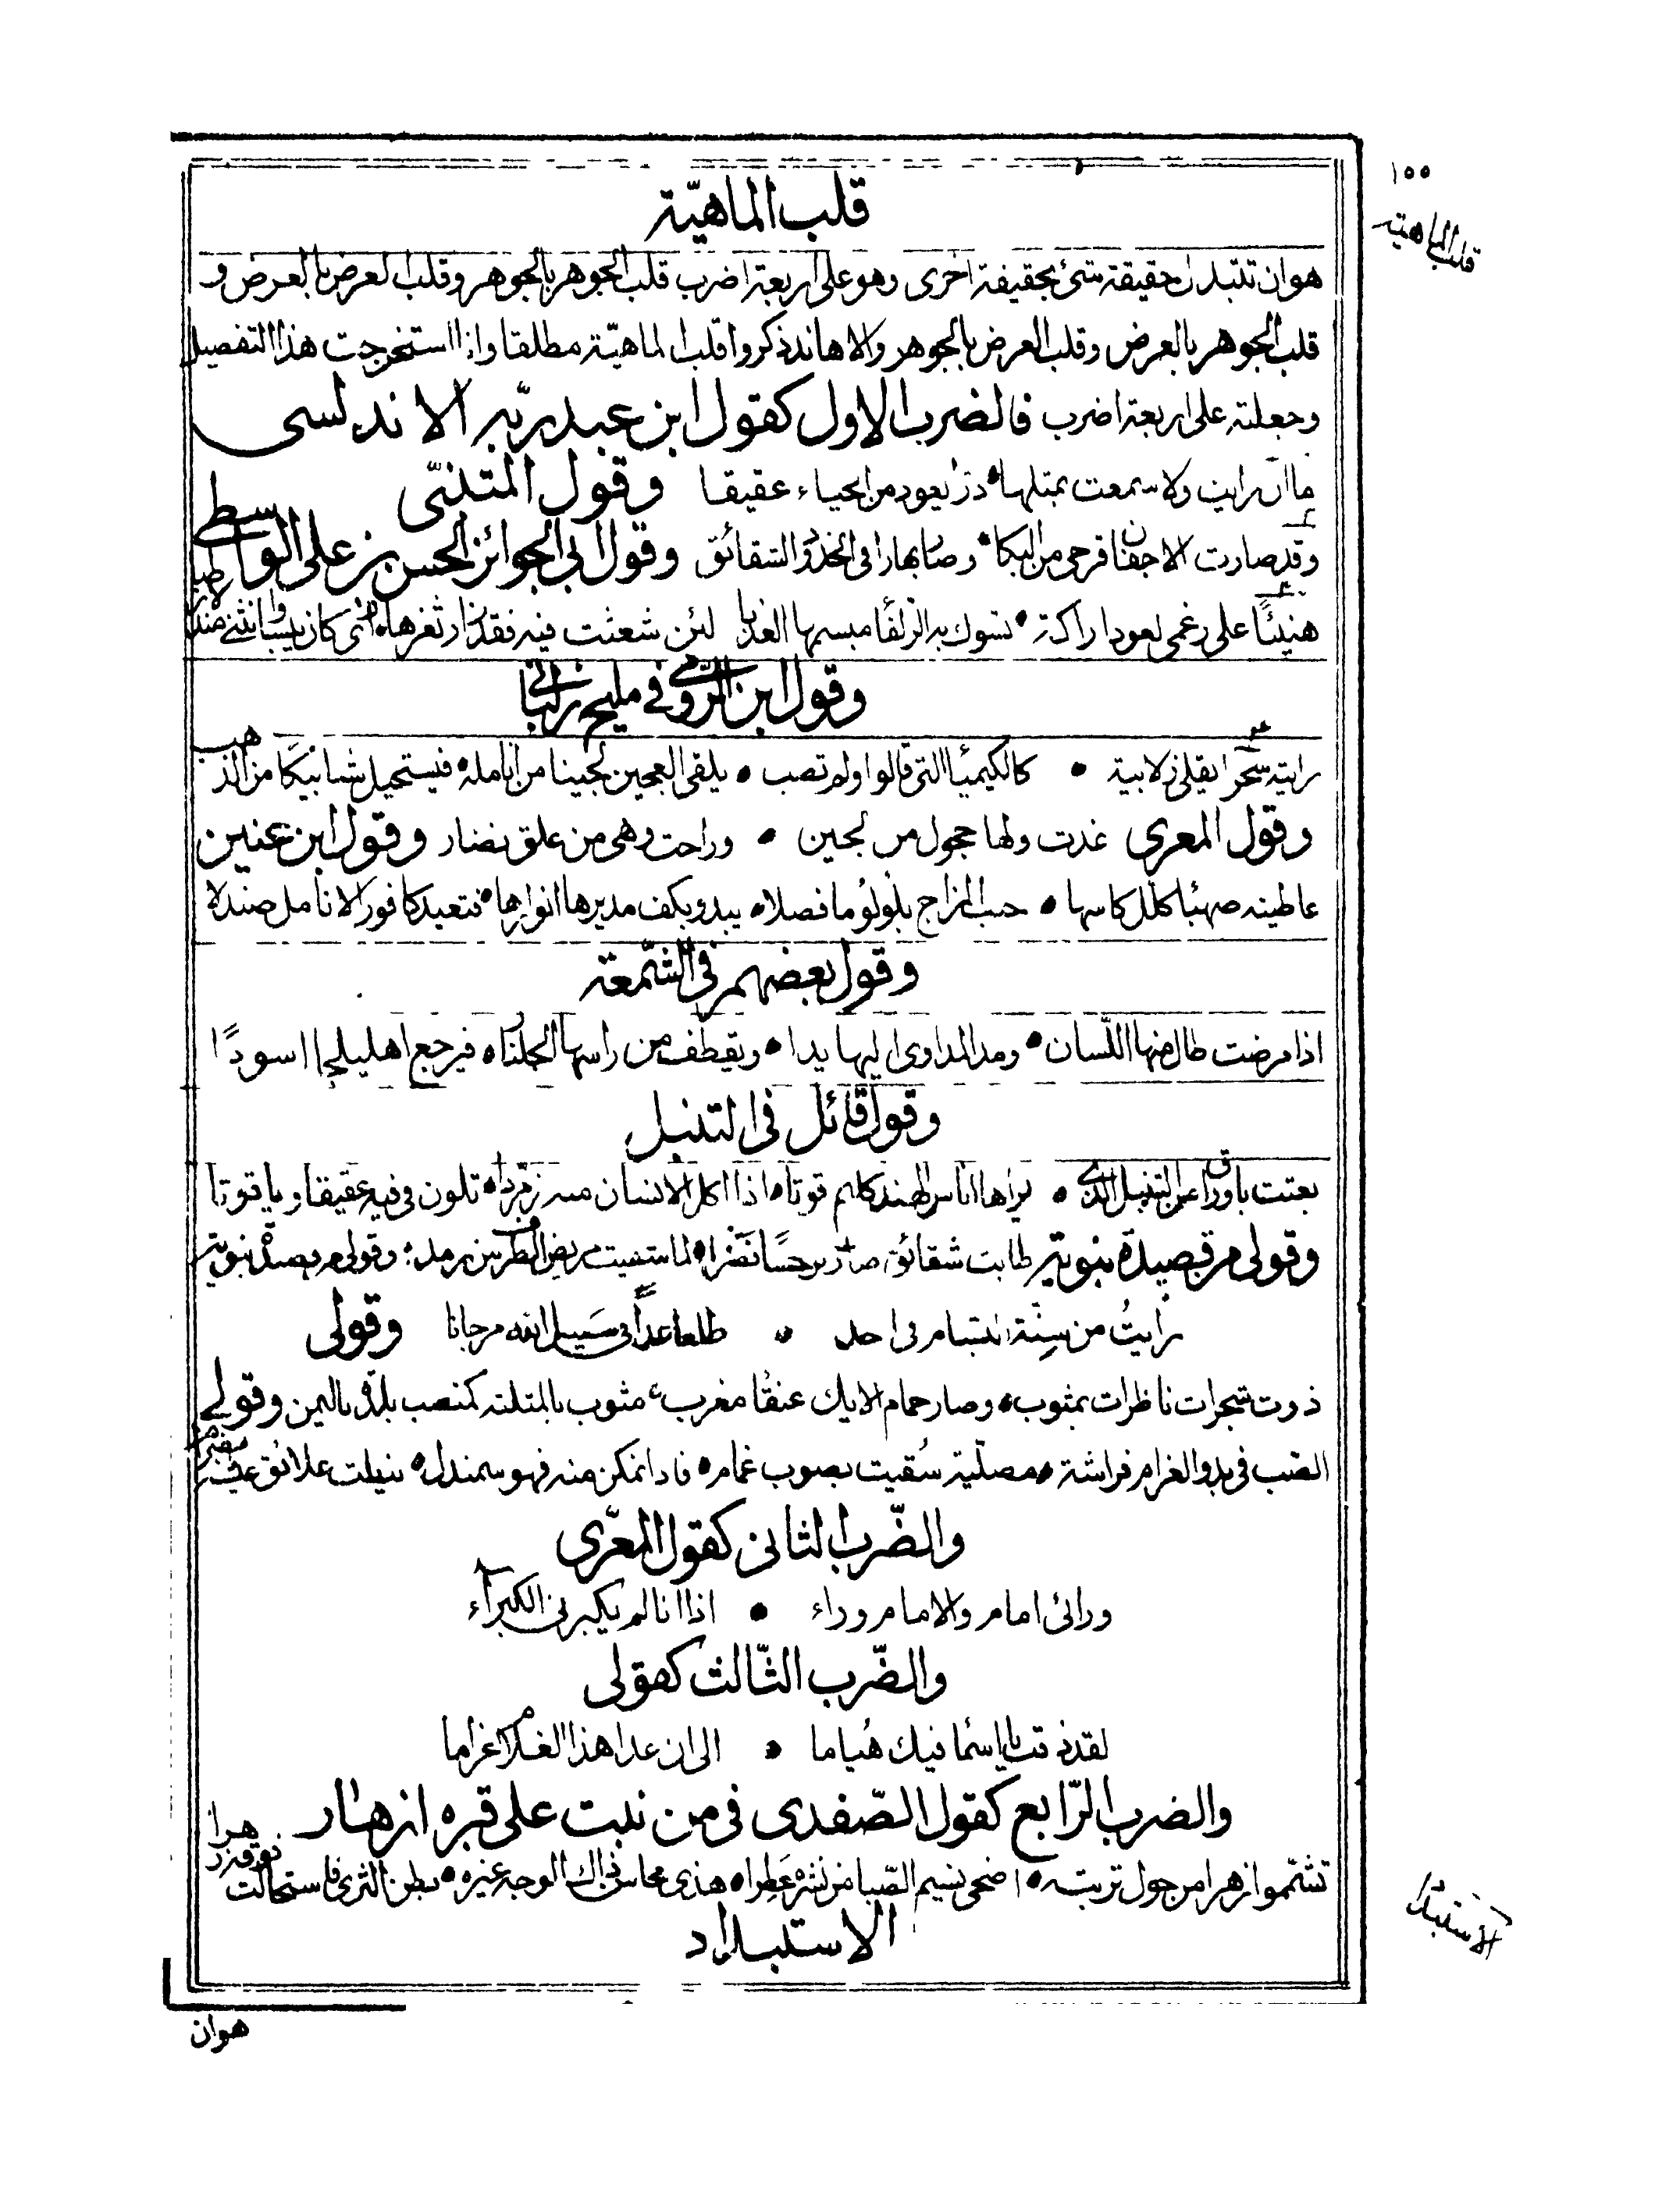 ١٥٥
قلب الماهية
قلب الماهيّة
هو ان تتبدل حقيقة شئ بحقيقة اخرى وهو على اربعة اضرب قلب الجوهر بالجوهر وقلب العرض بالعرض و
قلب الجوهر بالعرض وقلب العرض بالجوهر والاهاند ذكروا قلب الماهيّة مطلقا وانا استخرجت هذا التفصيل
وجعلته على اربعة اضرب فالضرب الاول كقول ابن عبد ربّه الاندلسى
ما ان رايت ولا سمعت بمثلها • درّا يعود من الحياء عقيقا وقول المتنبّى
وقد صارت الاجفان قرحى من البكا • وصار بهارا فى الخدود الشقائق وقول ابى الجوائز الحسن بن على الواسطى
هنيئًا على رغمى لعود اراكة • تسوك به الزلفا مبسمها العذبا لئن شعثت فيه فقد زار ثغرها •
وقول ابن الرومى فى مليح زلبانى
رايته سحرا يقلى زلابية • كالكيميا التى قالوا ولم تصب • يلقى العجين لجينا من انامله • فيستحيل شبابيكا من الذهب
وقول المعرى غدت ولها حجول من لجين • وراحت وهى من علق نضار وقول ابن عنين
عاطيته صهبا كلل كاسها • حبب المزاج بلولؤ ما فصلا • يبدو بكف مديرها انوارها • فتعيد كافور الانامل صندلا
وقول بعضهم فى الشّمعة
اذا مرضت طال منها اللسان • ومد المداوى اليها يدا • ويقطف من راسها الجلنار • فيرجع اهليلجا اسودًا
وقول قائل فى التنبل
بعثت باوراق من التنبل الذى • يراها اناس الهند كلهم قوتا • اذا اكل الانسان منه زمردا • تلون فى فيه عقيقا وياقوتا
وقولى من قصيدة نبوية طابت شقائق صارت نرجسًا نضرا • لما شفيت مريض الطرف من رمد وقولى من قصيدة نبوية
رايتُ من سِنّة البسام فى احد • طلعا غدا فى سَبيل الله مرجانا وقولى
ذوت شجرات ناظرات بمثوب • وصار حمام الايك عنقا مغرب مثوب بالمثلثة كمنصب بلدة باليمن وقولى
الصب فى بدو الغرام فراشة • فاذا تمكن منه فهو سمندل • نيطت علائق • مصلية سُقيت بصوب غمامه
والضّرب الثانى كقول المعرّى
ورائى امام والامام وراء • اذا انا لم يكبرنى الكبرآء
والضّرب الثّالث كقولى
لقد ذقت يا اسما فيك هُياما • الى ان غدا هذا الغلام غراما
والضرب الرّابع كقول الصّفدى فى من نبت على قبره ازهار
تشمّموا زهرا من حول تربته • اضحى نسيم الصّبا من نشره عَطِرا • هذى محاسن ذاك الوجه غيره • بطن الثرى فاستحالت فوقه زهرا
الاستبداد
الاستبداد
هو ان